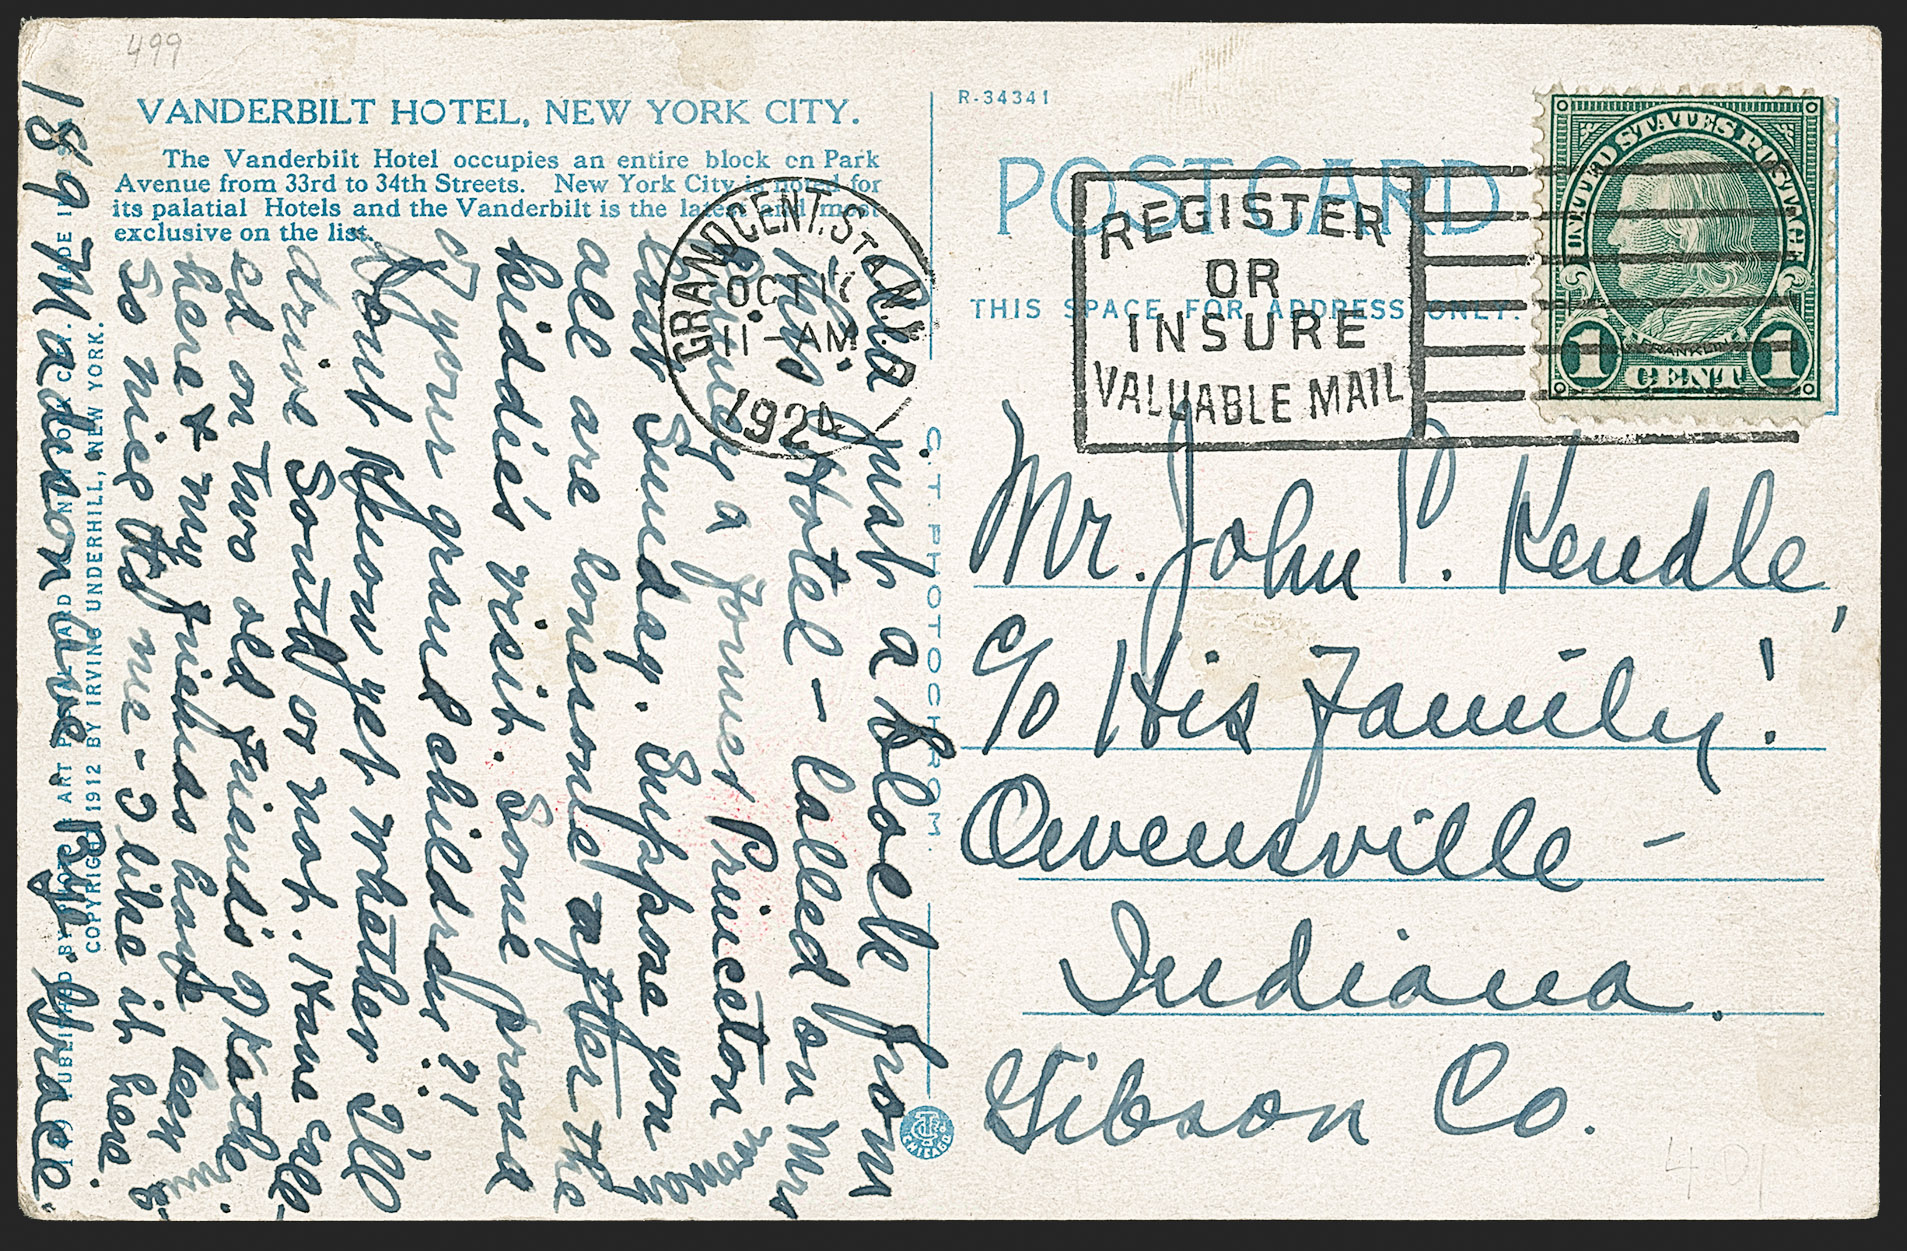 499
VANDERBILT HOTEL, NEW YORK CITY.
The Vanderbilt Hotel occupies an entire block on Park
Avenue from 33rd to 34th Streets. New York City is noted for
its palatial Hotels and the Vanderbilt is the latest and most
exclusive on the list.
R-34341
POST CARD
THIS SPACE FOR ADDRESS ONLY.
GRAND CENT. STA. N.Y.
OCT
11-AM
1924
REGISTER
OR
INSURE
VALUABLE MAIL
UNITED STATES POSTAGE
FRANKLIN
1 CENT 1
Mr. John P. Kendle,
c/o His Family!
Owensville -
Indiana.
Gibson Co.
401
C. T. PHOTOCHROM.
CHICAGO
just a block from
this Hotel - Called on Mrs
a former Princeton woman
last Sunday. Suppose you
all are lonesome after the
kiddie's visit. Some proud
of your grand children ?!
Dont know yet whether I'll
drive South or not. Have call-
ed on two old friends I Kathe.
here & my friends have been
so nice to me - I like it here
189 Madison ave - Grace.
PUBLISHED BY THOMPSON ART POST CARD NEW YORK CITY. MADE IN
COPYRIGHT 1912 BY IRVING UNDERHILL, NEW YORK.